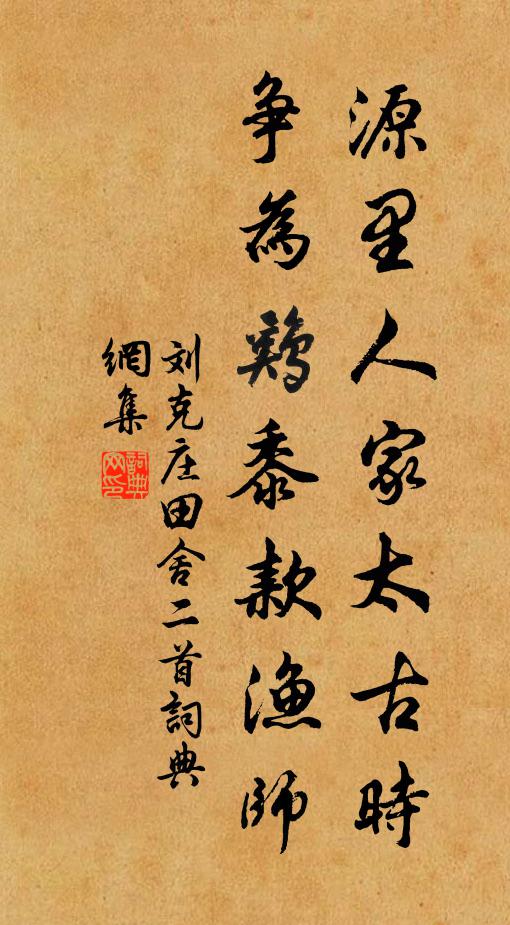 源里人家太古時
争為鷄黍款漁師
刘克庄田舍二首詞典
網集
詞典
网印